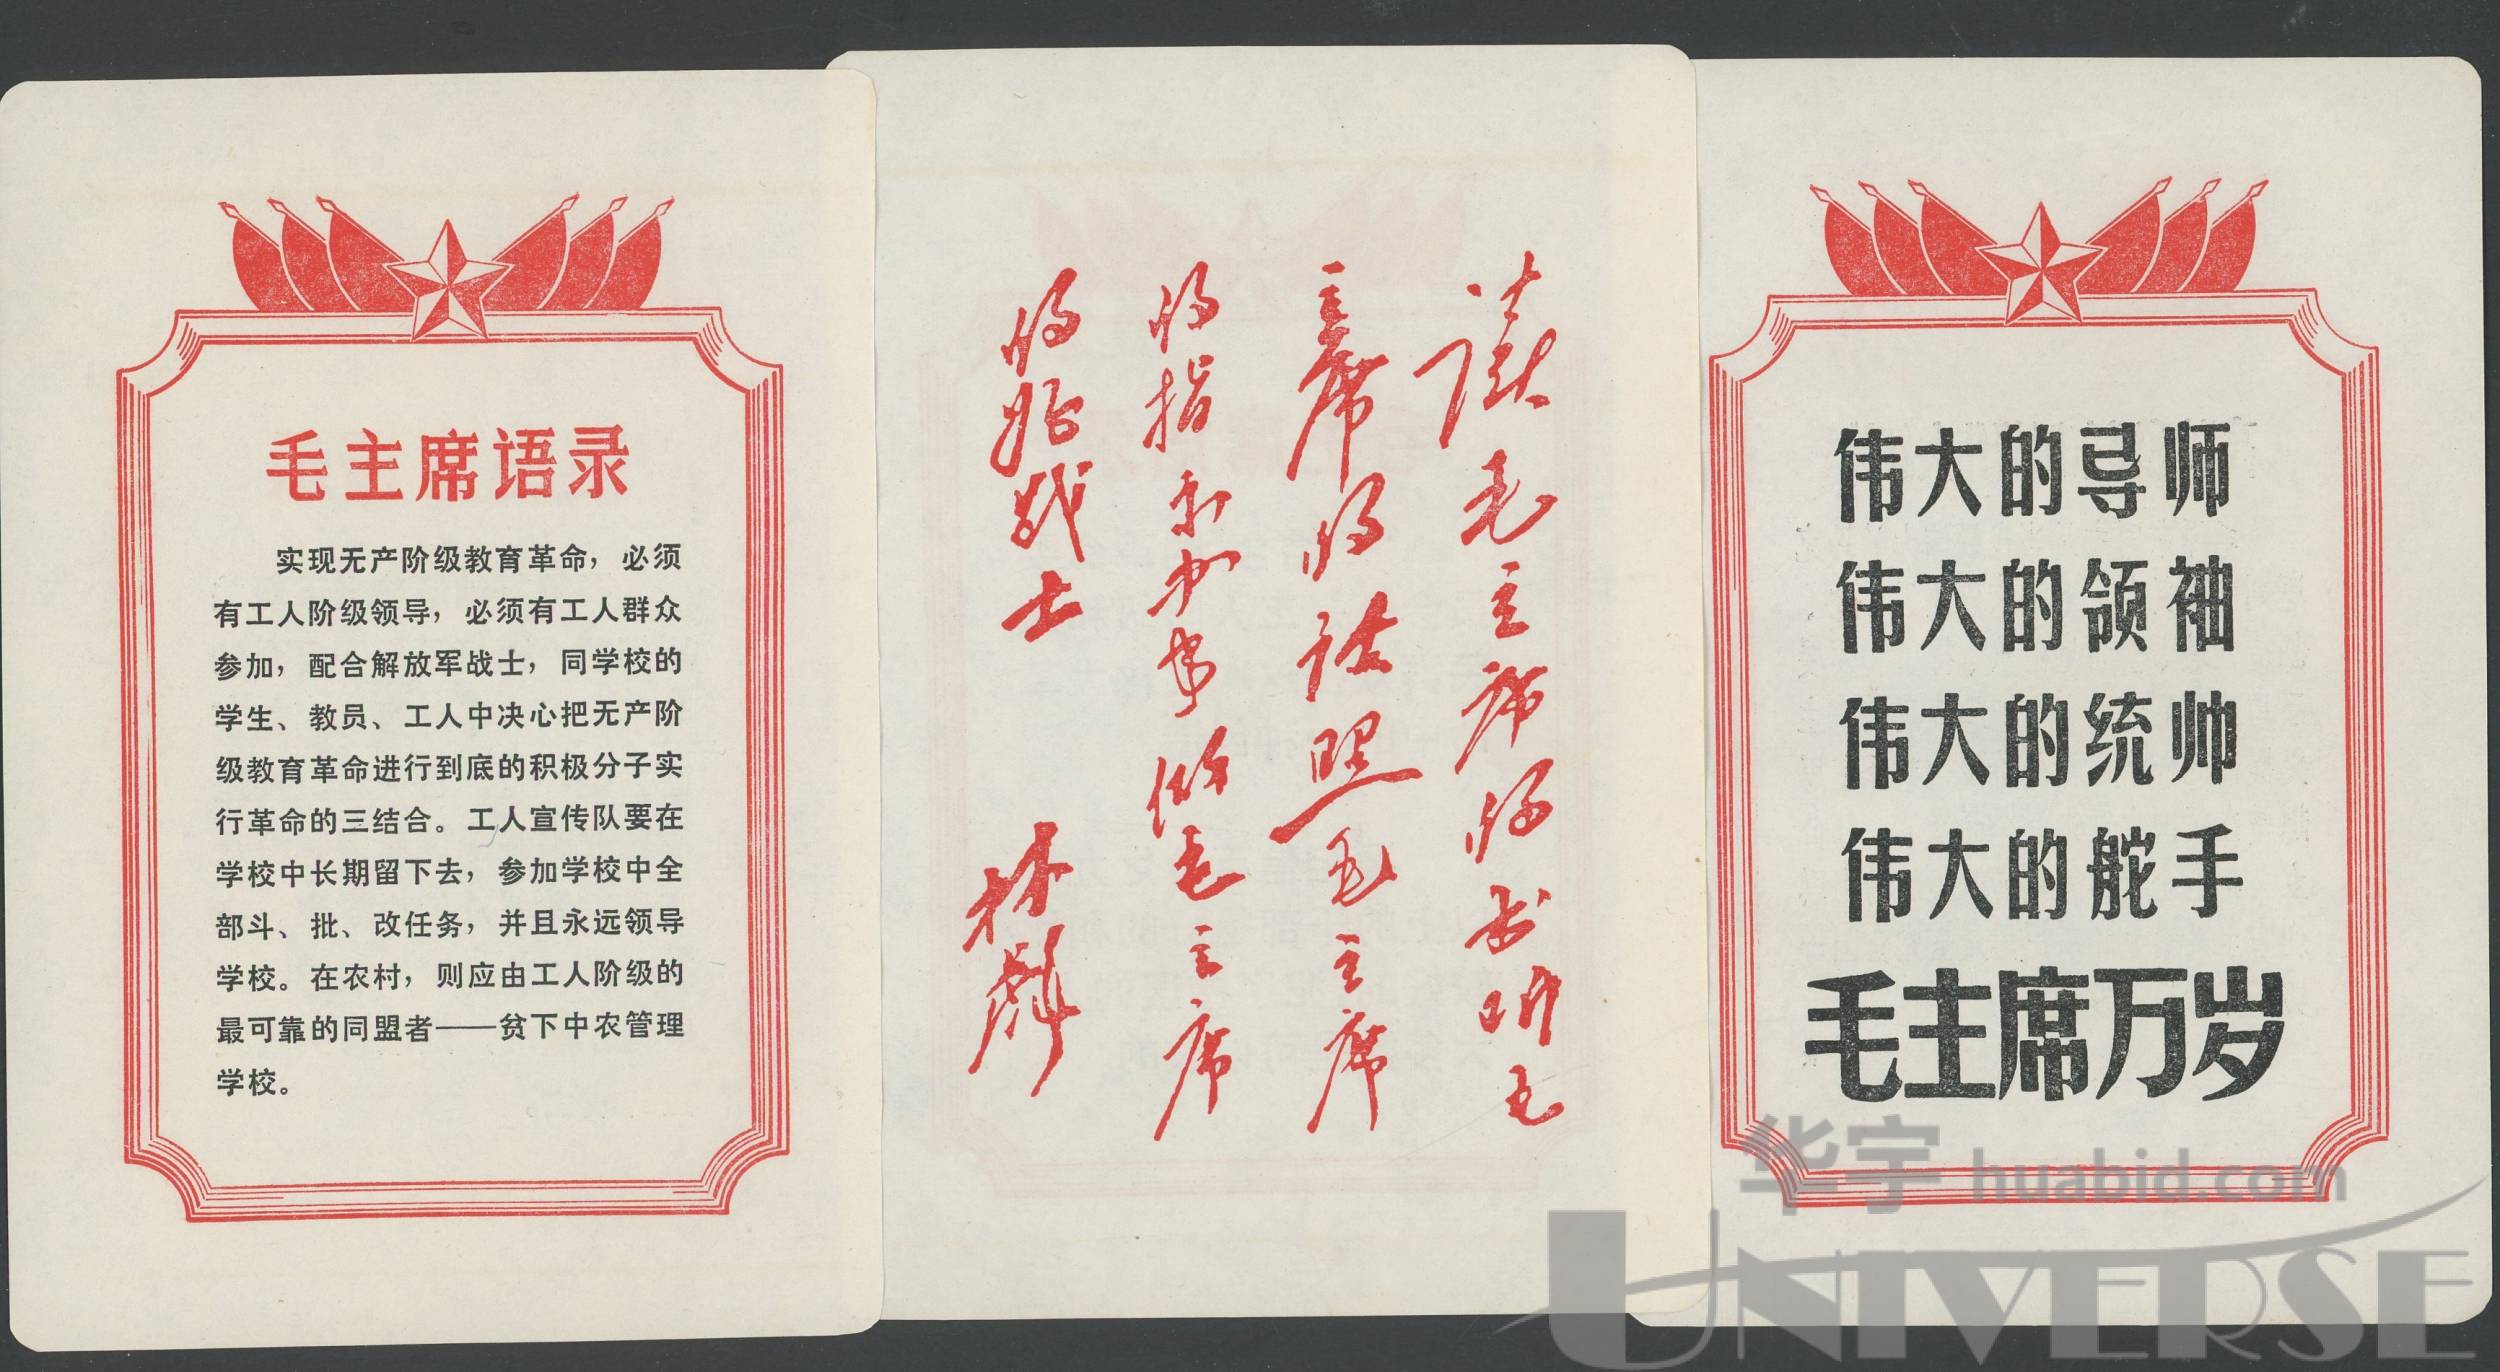 毛主席语录
实现无产阶级教育革命，必须
有工人阶级领导，必须有工人群众
参加，配合解放军战士，同学校的
学生、教员、工人中决心把无产阶
级教育革命进行到底的积极分子实
行革命的三结合。工人宣传队要在
学校中长期留下去，参加学校中全
部斗、批、改任务，并且永远领导
学校。在农村，则应由工人阶级的
最可靠的同盟者——贫下中农管理
学校。
读毛主席的书听毛
主席的话照毛主席
的指示办事做毛主席
的好战士
林彪
伟大的导师
伟大的领袖
伟大的统帅
伟大的舵手
毛主席万岁
华宇 huabid.com
UNIVERSE